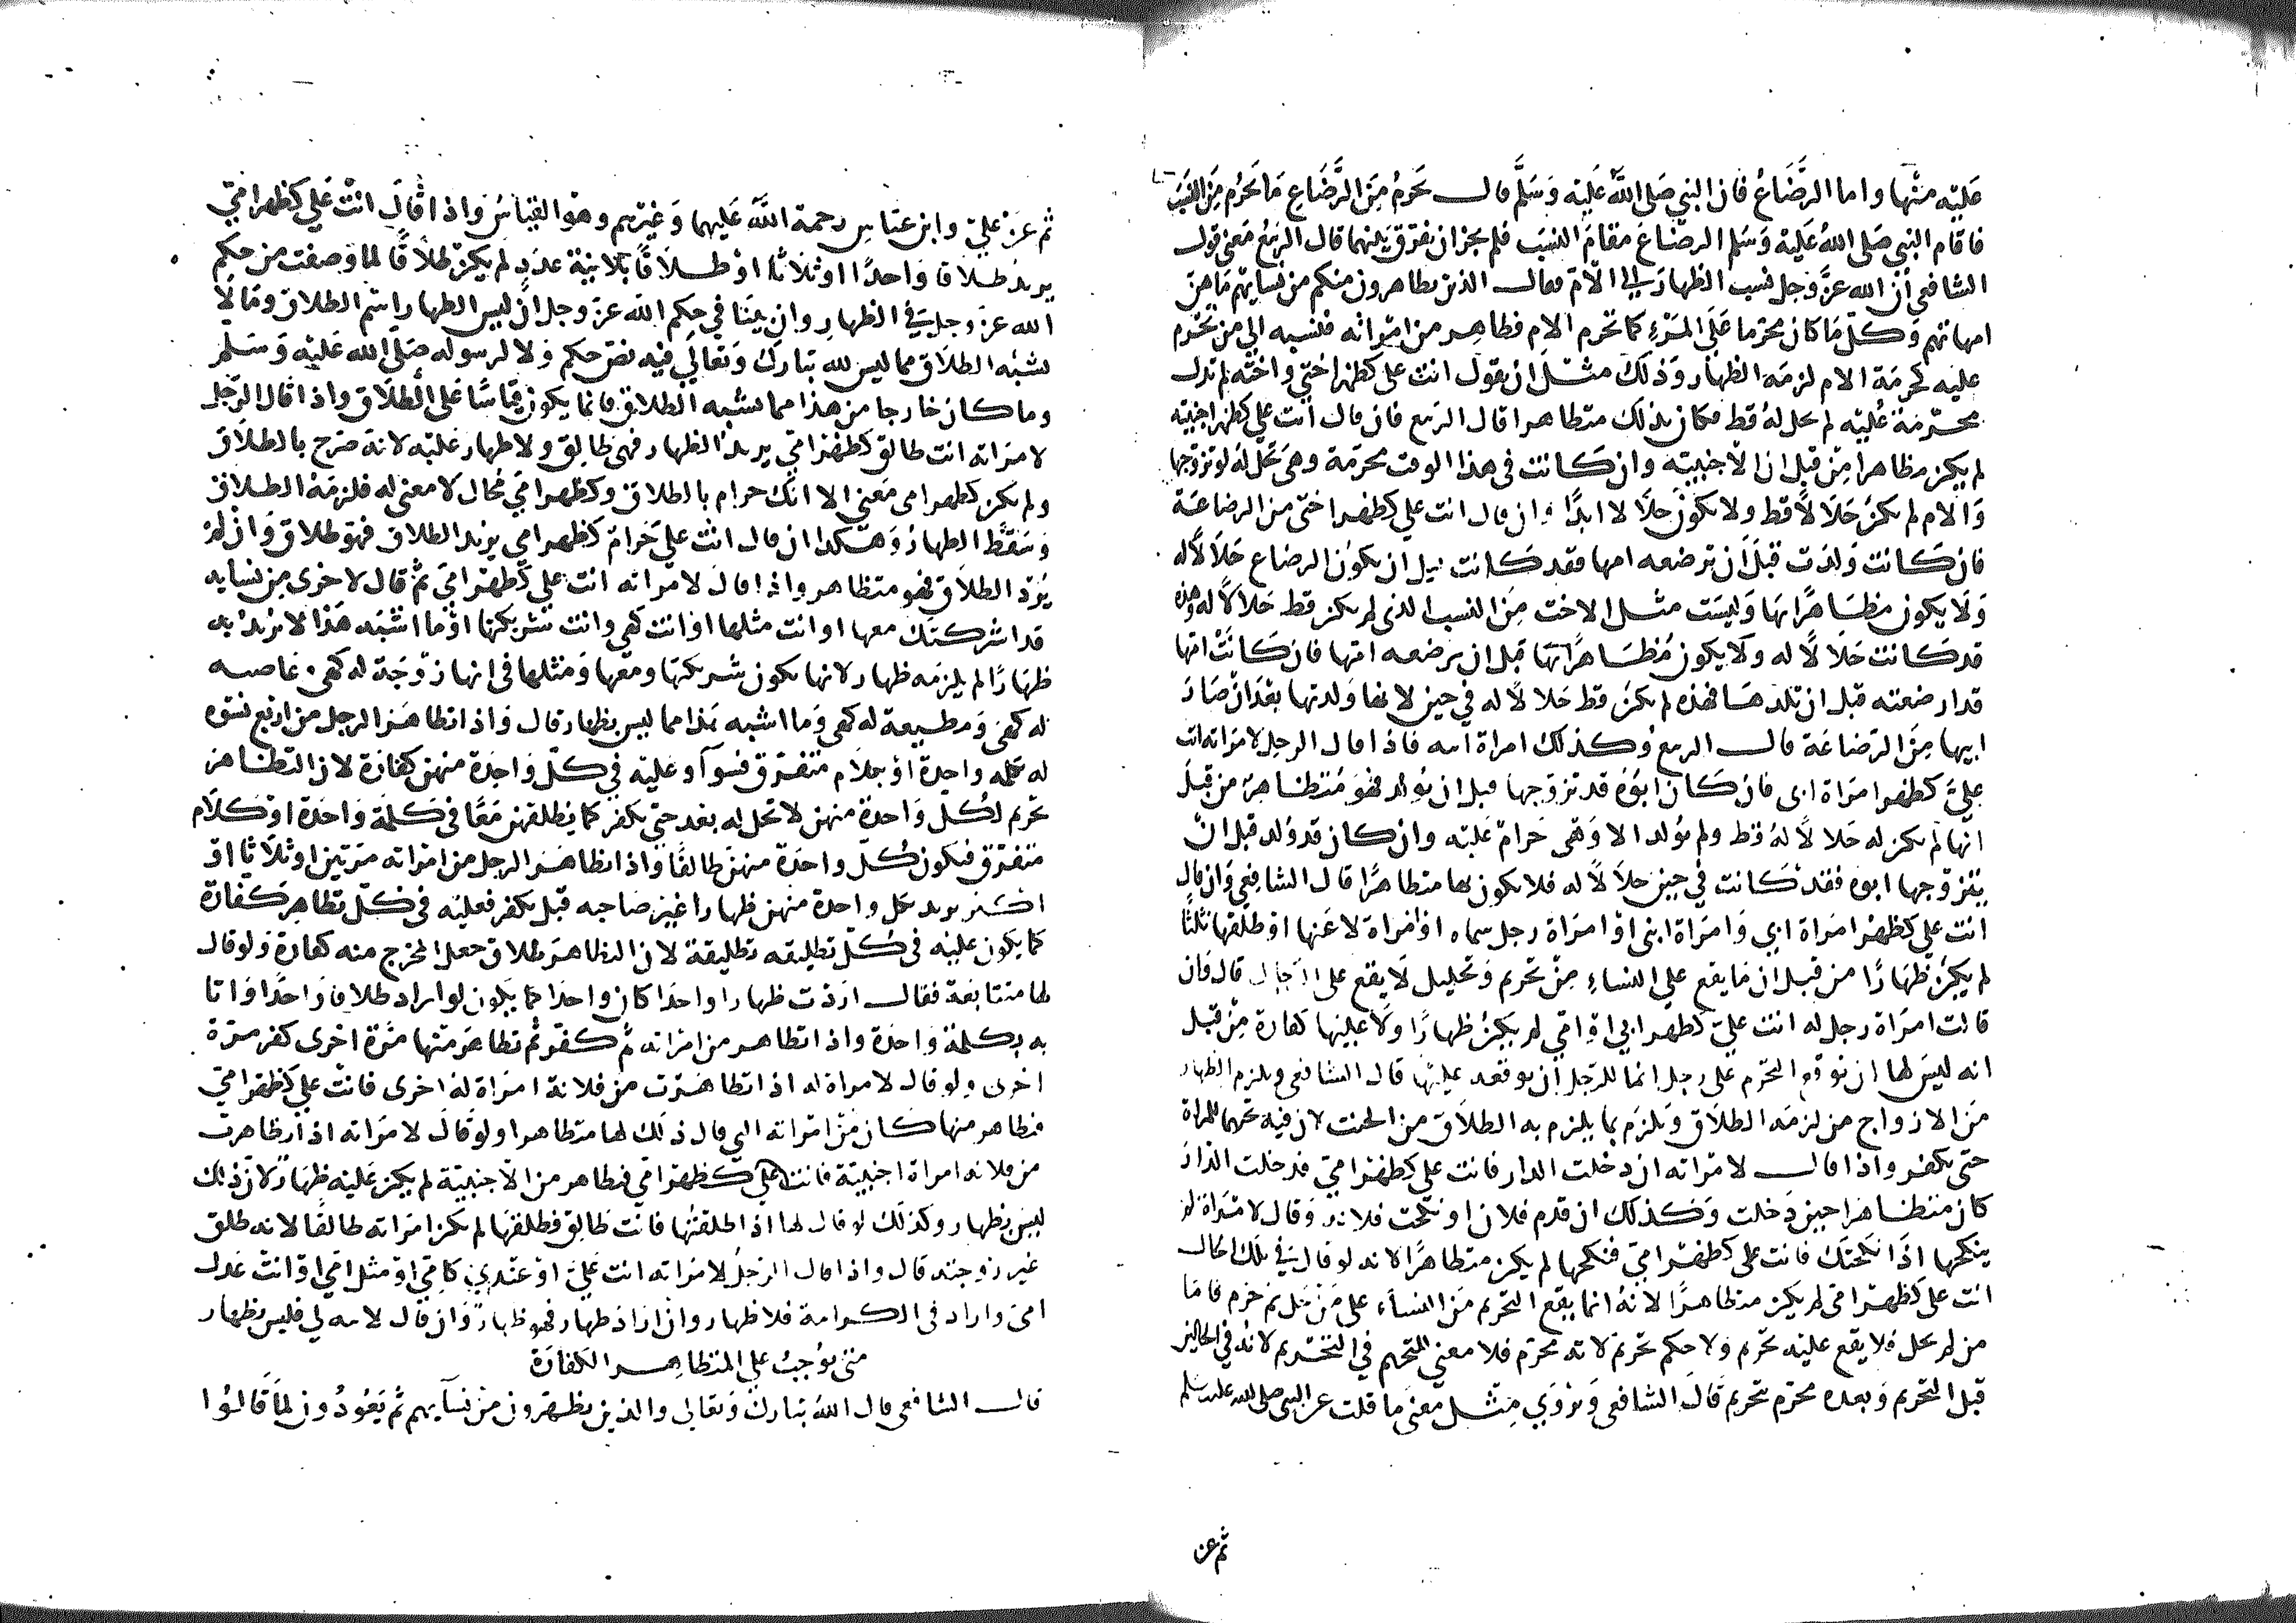 عليه منها واما الرضاع فان النبي صلى الله عليه وسلم قال يحرم من الرضاع ما يحرم من النسب
فاقام النبي صلى الله عليه وسلم الرضاع مقام النسب فلم يجز ان يفرق بينهما قال الربيع معنى قول
الشافعي ان الله عز وجل نسب الظهار الى الام فقال الذين يظاهرون منكم من نسايهم ما هن
امهاتهم وكل ما كان محرما على المرء كما تحرم الام فظاهر من امراته فنسبه الي من تحرم
عليه كحرمة الام لزمه الظهار وذلك مثل ان يقول انت علي كظهر اختي واخته لم تزل
محرمة عليه لم تحل له قط فكان بذلك متظاهرا قال الربيع فان قال انت علي كظهر اجنبية
لم يكن مظاهرا من قبل ان الاجنبية وان كانت في هذا الوقت محرمة وهي تحل له لو تزوجها
والام لم تكن حلالا قط ولا تكون حلالا ابدا وان قال انت علي كظهر اختي من الرضاعة
فان كانت ولدت قبل ان ترضعه امها فقد كانت قبل ان يكون الرضاع حلالا له
ولا يكون مظاهرا بها وليست مثل الاخت من النسب الذي لم يكن قط حلالا له وهذه
قد كانت حلالا له ولا يكون مظاهرا بها قبل ان ترضعه امها فان كانت امها
قد ارضعته قبل ان تلدها فهذه لم تكن قط حلالا له في حين لانها ولدتها بعد ان صار
ابنها من الرضاعة قال الربيع وكذلك امراة ابيه فاذا قال الرجل لامراته انت
علي كظهر امراة ابي فان كان ابوه قد تزوجها قبل ان يولد فهو متظاهر من قبل
انها لم تكن له حلالا له قط ولم يولد الا وهي حرام عليه وان كان قد ولد قبل ان
يتزوجها ابوه فقد كانت في حين حلالا له فلا يكون بها متظاهرا قال الشافعي وان قال
انت علي كظهر امراة ابي وامراة ابني او امراة رجل سماه او امراة لاعنها او طلقها ثلثا
لم يكن ظهارا من قبل ان ما يقع علي النساء من تحريم وتحليل لا يقع على الرجال قال فان
قالت امراة رجل له انت علي كظهر ابي او امي لم يكن ظهارا ولا عليها كفارة من قبل
انه ليس لها ان توقع التحريم على رجل انما للرجل ان يوقعه عليها قال الشافعي ويلزم الظهار
من الازواج من لزمه الطلاق ويلزم بما يلزم به الطلاق من الحنث لان فيه تحريما للمراة
حتى يكفر واذا قال لامراته ان دخلت الدار فانت على كظهر امي فدخلت الدار
كان متظاهرا حين دخلت وكذلك ان قدم فلان او نكحت فلانة وقال لامراة لم
ينكحها اذا نكحتك فانت علي كظهر امي فنكحها لم يكن متظاهرا لانه لو قال في تلك الحال
انت على كظهر امي لم يكن متظاهرا لانه انما يقع التحريم من النساء على من تحل ثم حرم فاما
من لم تحل فلا يقع عليه تحريم ولا حكم تحريم لانه محرم فلا معنى للتحريم في التحريم لانه في الحالين
قبل التحريم وبعده محرم بتحريم قال الشافعي ويروى مثل معنى ما قلت عن النبي صلى الله عليه وسلم
ثم عن
ثم عن علي وابن عباس رحمة الله عليهما وغيرهم وهو القياس واذا قال انت علي كظهر امي
يريد طلاقا واحدا او ثلاثا او طلاقا بلا نية عدد لم يكن طلاقا لما وصفت من حكم
الله عز وجل في الظهار وان بينا في حكم الله عز وجل ان ليس الظهار اسم الطلاق ومالا
يشبه الطلاق مما ليس لله تبارك وتعالى فيه نص حكم ولا لرسوله صلى الله عليه وسلم
وما كان خارجا من هذا مما يشبه الطلاق فانما يكون قياسا على الطلاق واذا قال الرجل
لامراته انت طالق كظهر امي يريد الظهار فهي طالق ولا ظهار عليه لانه صرح بالطلاق
ولم يكن كظهر امي معنى الا انك حرام بالطلاق وكظهر امي محال لا معنى له فلزمه الطلاق
وسقط الظهار وهكذا ان قال انت علي حرام كظهر امي يريد الطلاق فهو طلاق وان لم
يرد الطلاق فهو متظاهر واذا قال لامراته انت علي كظهر امي ثم قال لاخرى من نسايه
قد اشركتك معها او انت مثلها او انت كهي وانت شريكتها او ما اشبه هذا لا يريد به
ظهارا لم يلزمه ظهار لانها تكون شريكتها ومعها ومثلها في انها زوجة له كهي عاصيه
له كهي ومطيعة له كهي وما اشبه هذا مما ليس بظهار قال واذا تظاهر الرجل من اربع نسوه
له بكلمه واحدة او بكلام متفرق فسوآ وعليه في كل واحدة منهن كفارة لان التظاهر
تحريم لكل واحدة منهن لا تحل له بعد حتى يكفر كما يطلقهن معا في كلمة واحدة او كلام
متفرق فتكون كل واحدة منهن طالقا واذا تظاهر الرجل من امراته مرتين او ثلاثا او
اكثر يريد بكل واحدة منهن ظهارا غير صاحبه قبل يكفر فعليه في كل تظاهر كفارة
كما يكون عليه في كل تطليقه تطليقة لان التظاهر طلاق جعل المخرج منه كفارة ولو قال
لها متتابعة فقال اردت ظهارا واحدا كان واحدا كما يكون لو اراد طلاقا واحدا وابانا
به بكلمة واحدة واذا تظاهر من امراته ثم كفر ثم تظاهر منها مرة اخرى كفر مرة
اخرى ولو قال لامراة له اذا تظاهرت من فلانة امراة له اخرى فانت علي كظهر امي
فتظاهر منها كان من امراته التي قال ذلك لها متظاهرا ولو قال لامراته اذا تظاهرت
من فلانه امراة اجنبية فانت علي كظهر امي فتظاهر من الاجنبية لم يكن عليه ظهار لان ذلك
ليس بظهار وكذلك لو قال لها اذا طلقتها فانت طالق فطلقها لم تكن امراته طالقا لانه طلق
غير زوجته قال واذا قال الرجل لامراته انت علي او عندي كامي او مثل امي او انت عدل
امي واراد في الكرامة فلا ظهار وان اراد ظهار فهو ظهار وان قال لامه لي فليس بظهار
متى يوجب علي المتظاهر الكفارة
قال الشافعي قال الله تبارك وتعالى والذين يظهرون من نسآيهم ثم يعودون لما قالوا